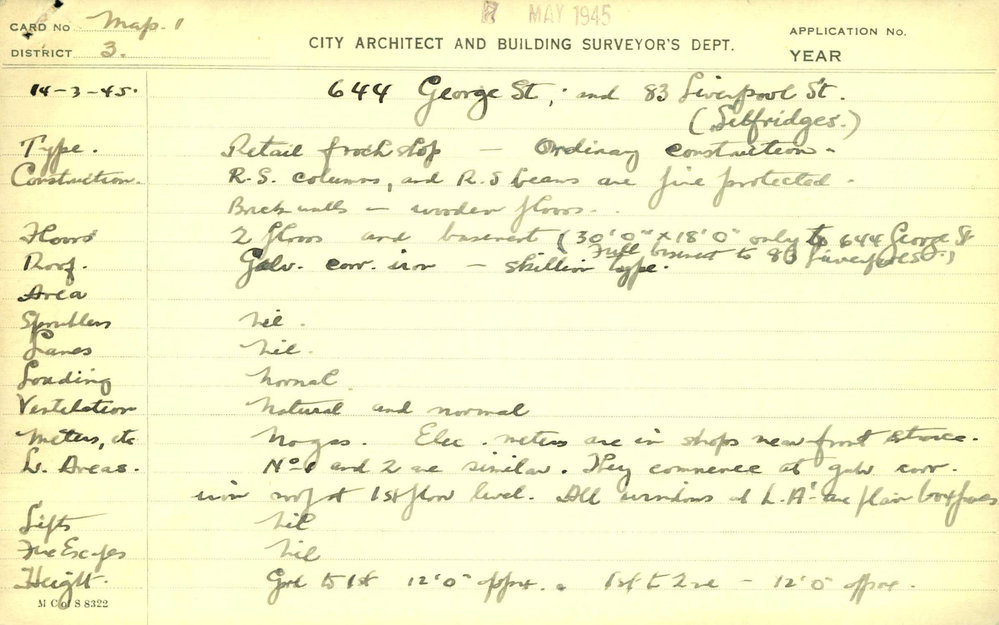 MAY 1945
CARD No Map. 1
DISTRICT 3.
CITY ARCHITECT AND BUILDING SURVEYOR'S DEPT.
APPLICATION No.
YEAR
14-3-45. 644 George St, and 83 Liverpool St.
(Selfridges.)
Type. Retail frock shop — Ordinary construction.
Construction. R.S. columns, and R.S beams are fire protected.
Brick walls — wooden floors.
Floors 2 floors and basement (30'0" x 18'0" only to 644 George St
Full basement to 83 Liverpool St.)
Roof. Galv. corr. iron — skillion type.
Area
Sprinklers Nil.
Lanes Nil.
Loading Normal.
Ventilation Natural and normal
Meters, etc No gas. Elec. meters are in shops near front
L. Areas. No 1 and 2 are similar. They commence at galv corr.
iron roof at 1st floor level. All windows at L.A's are plain
Lifts Nil
Fire Escapes Nil
Height. Grd to 1st 12'0" approx. 1st to 2nd — 12'0" approx.
M C of S 8322